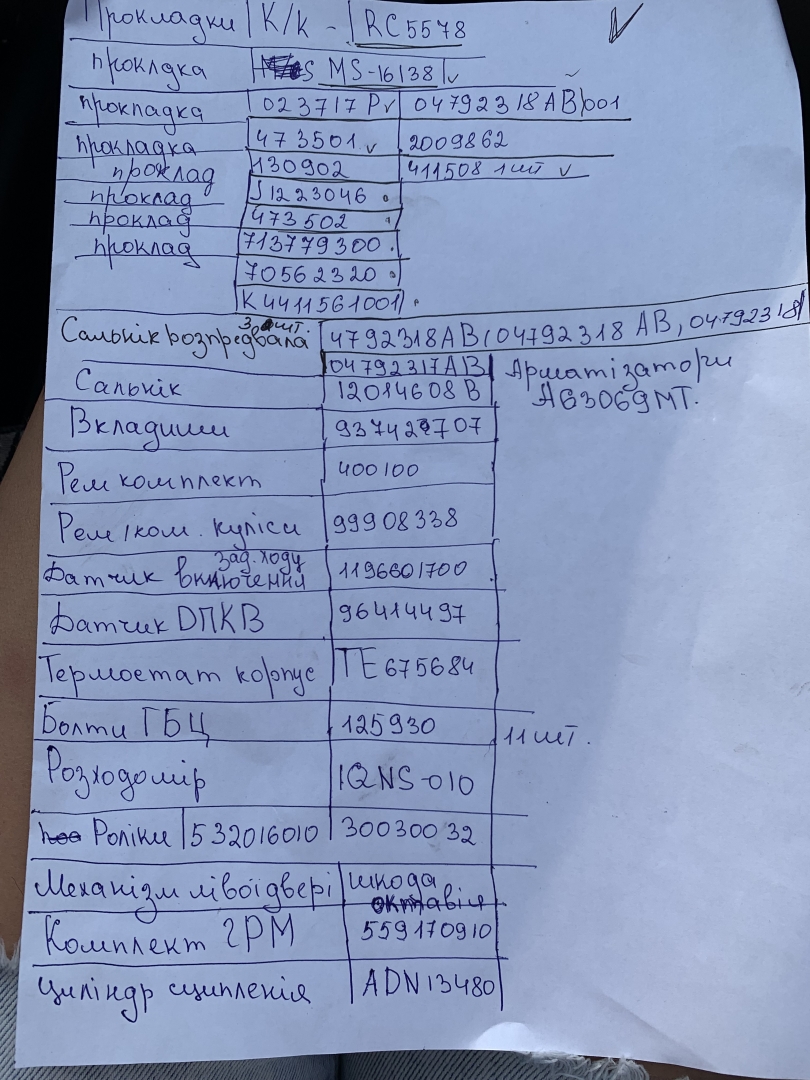 Прокладки К/К - RC5578
прокладка MS-16138
прокладка 023717 P 04792318AB 001
прокладка 473501 2009862
проклад 130902 411508 1шт
проклад J1223046
проклад 473502
проклад 713779300
70562320
К4411561001
Сальнік розпредвала 4792318AB, 04792318 AB, 04792318
04792317AB
Сальнік 12014608 B
А63069МТ.
Вкладиши
Рем комплект 400100
Рем/ком. куліси 99908338
зад. ходу
Датчик включення 1196601700
Датчик ДПКВ 96414497
Термостат корпус TE 675684
Болти ГБЦ 125930 11 шт.
Розходомір IQNS-010
Роліки 532016010 300300 32
Механізм лівої двері шкода
октавія
Комплект ГРМ 559170910
Циліндр сциплєнія ADN13480